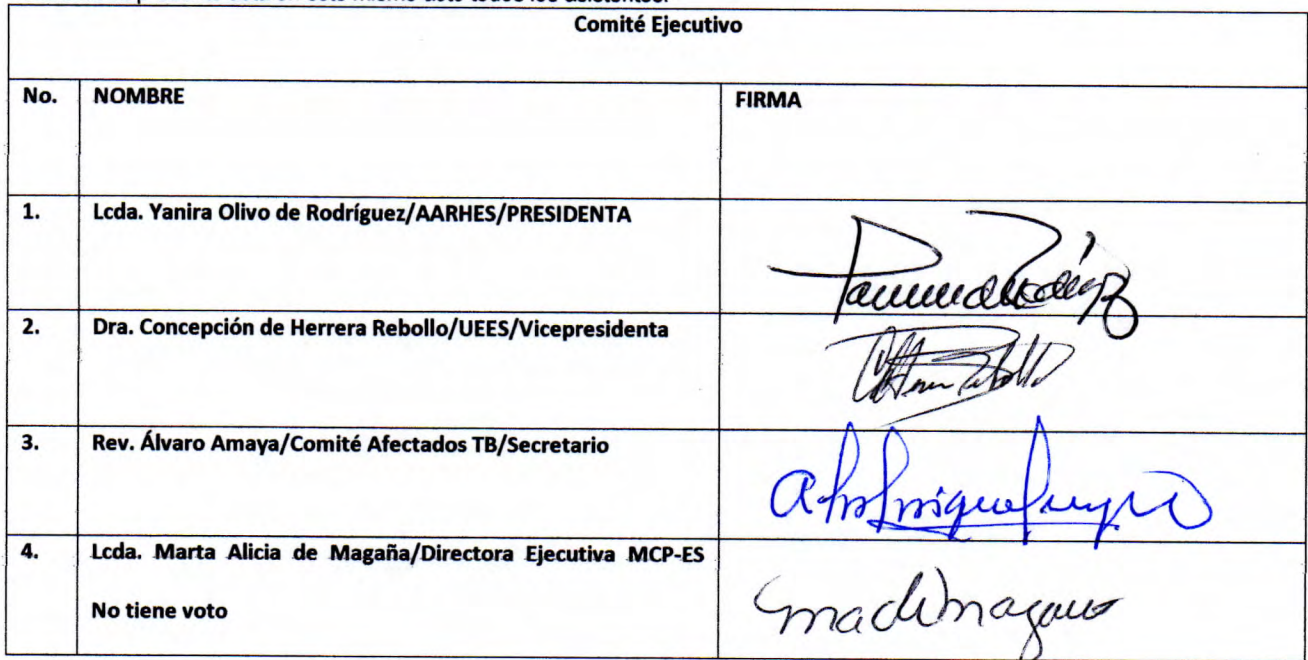 en este mismo acto todos los asistentes.
Comité Ejecutivo
No. NOMBRE FIRMA
1. Lcda. Yanira Olivo de Rodríguez/AARHES/PRESIDENTA
2. Dra. Concepción de Herrera Rebollo/UEES/Vicepresidenta
3. Rev. Álvaro Amaya/Comité Afectados TB/Secretario
4. Lcda. Marta Alicia de Magaña/Directora Ejecutiva MCP-ES
No tiene voto